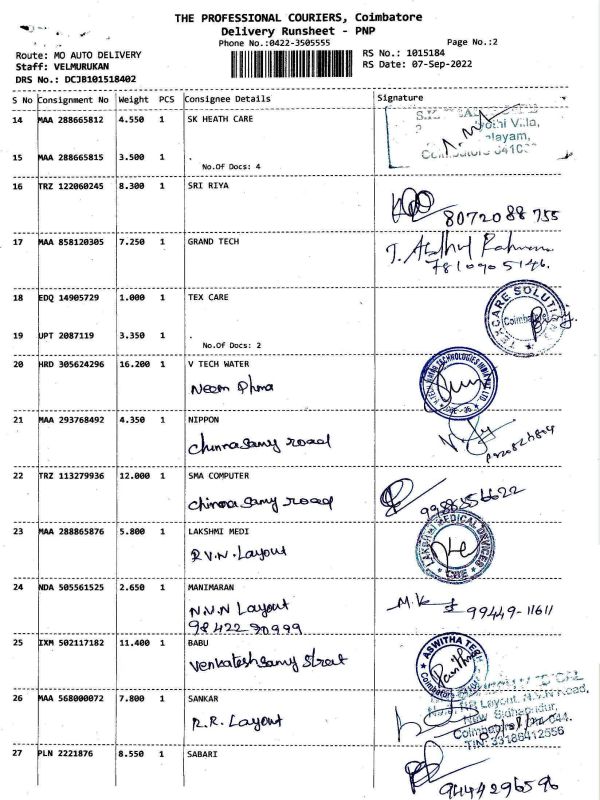 THE PROFESSIONAL COURIERS, Coimbatore
Delivery Runsheet - PNP
Phone No.:0422-3505555 Page No.:2
Route: MO AUTO DELIVERY RS No.: 1015184
Staff: VELMURUKAN RS Date: 07-Sep-2022
DRS No.: DCJB101518402
S No Consignment No Weight PCS Consignee Details Signature
14 MAA 288665812 4.550 1 SK HEATH CARE
15 MAA 288665815 3.500 1 .
No.Of Docs: 4
16 TRZ 122060245 8.300 1 SRI RIYA
8072088755
17 MAA 858120305 7.250 1 GRAND TECH
7810905146.
18 EDQ 14905729 1.000 1 TEX CARE
TEXCARE SOLUTION
Coimbatore
19 UPT 2087119 3.350 1 .
No.Of Docs: 2
20 HRD 305624296 16.200 1 V TECH WATER
21 MAA 293768492 4.350 1 NIPPON
chinnasamy road
22 TRZ 113279936 12.000 1 SMA COMPUTER
chinnasamy road
23 MAA 288865876 5.800 1 LAKSHMI MEDI
R.V.N. Layout
LAKSHMI MEDICAL DEVICES
CBE
24 NDA 505561525 2.650 1 MANIMARAN
N.V.N Layout M.K 99449-11611
98422 90999
25 IXM 502117182 11.400 1 BABU
Venkateshsamy Street
ASWITHA TECH
Coimbatore
26 MAA 568000072 7.800 1 SANKAR
R.R. Layout
Layout, N.V.N Road,
New Sidhapudur,
TIN: 33186412556
27 PLN 2221876 8.550 1 SABARI
9444296596